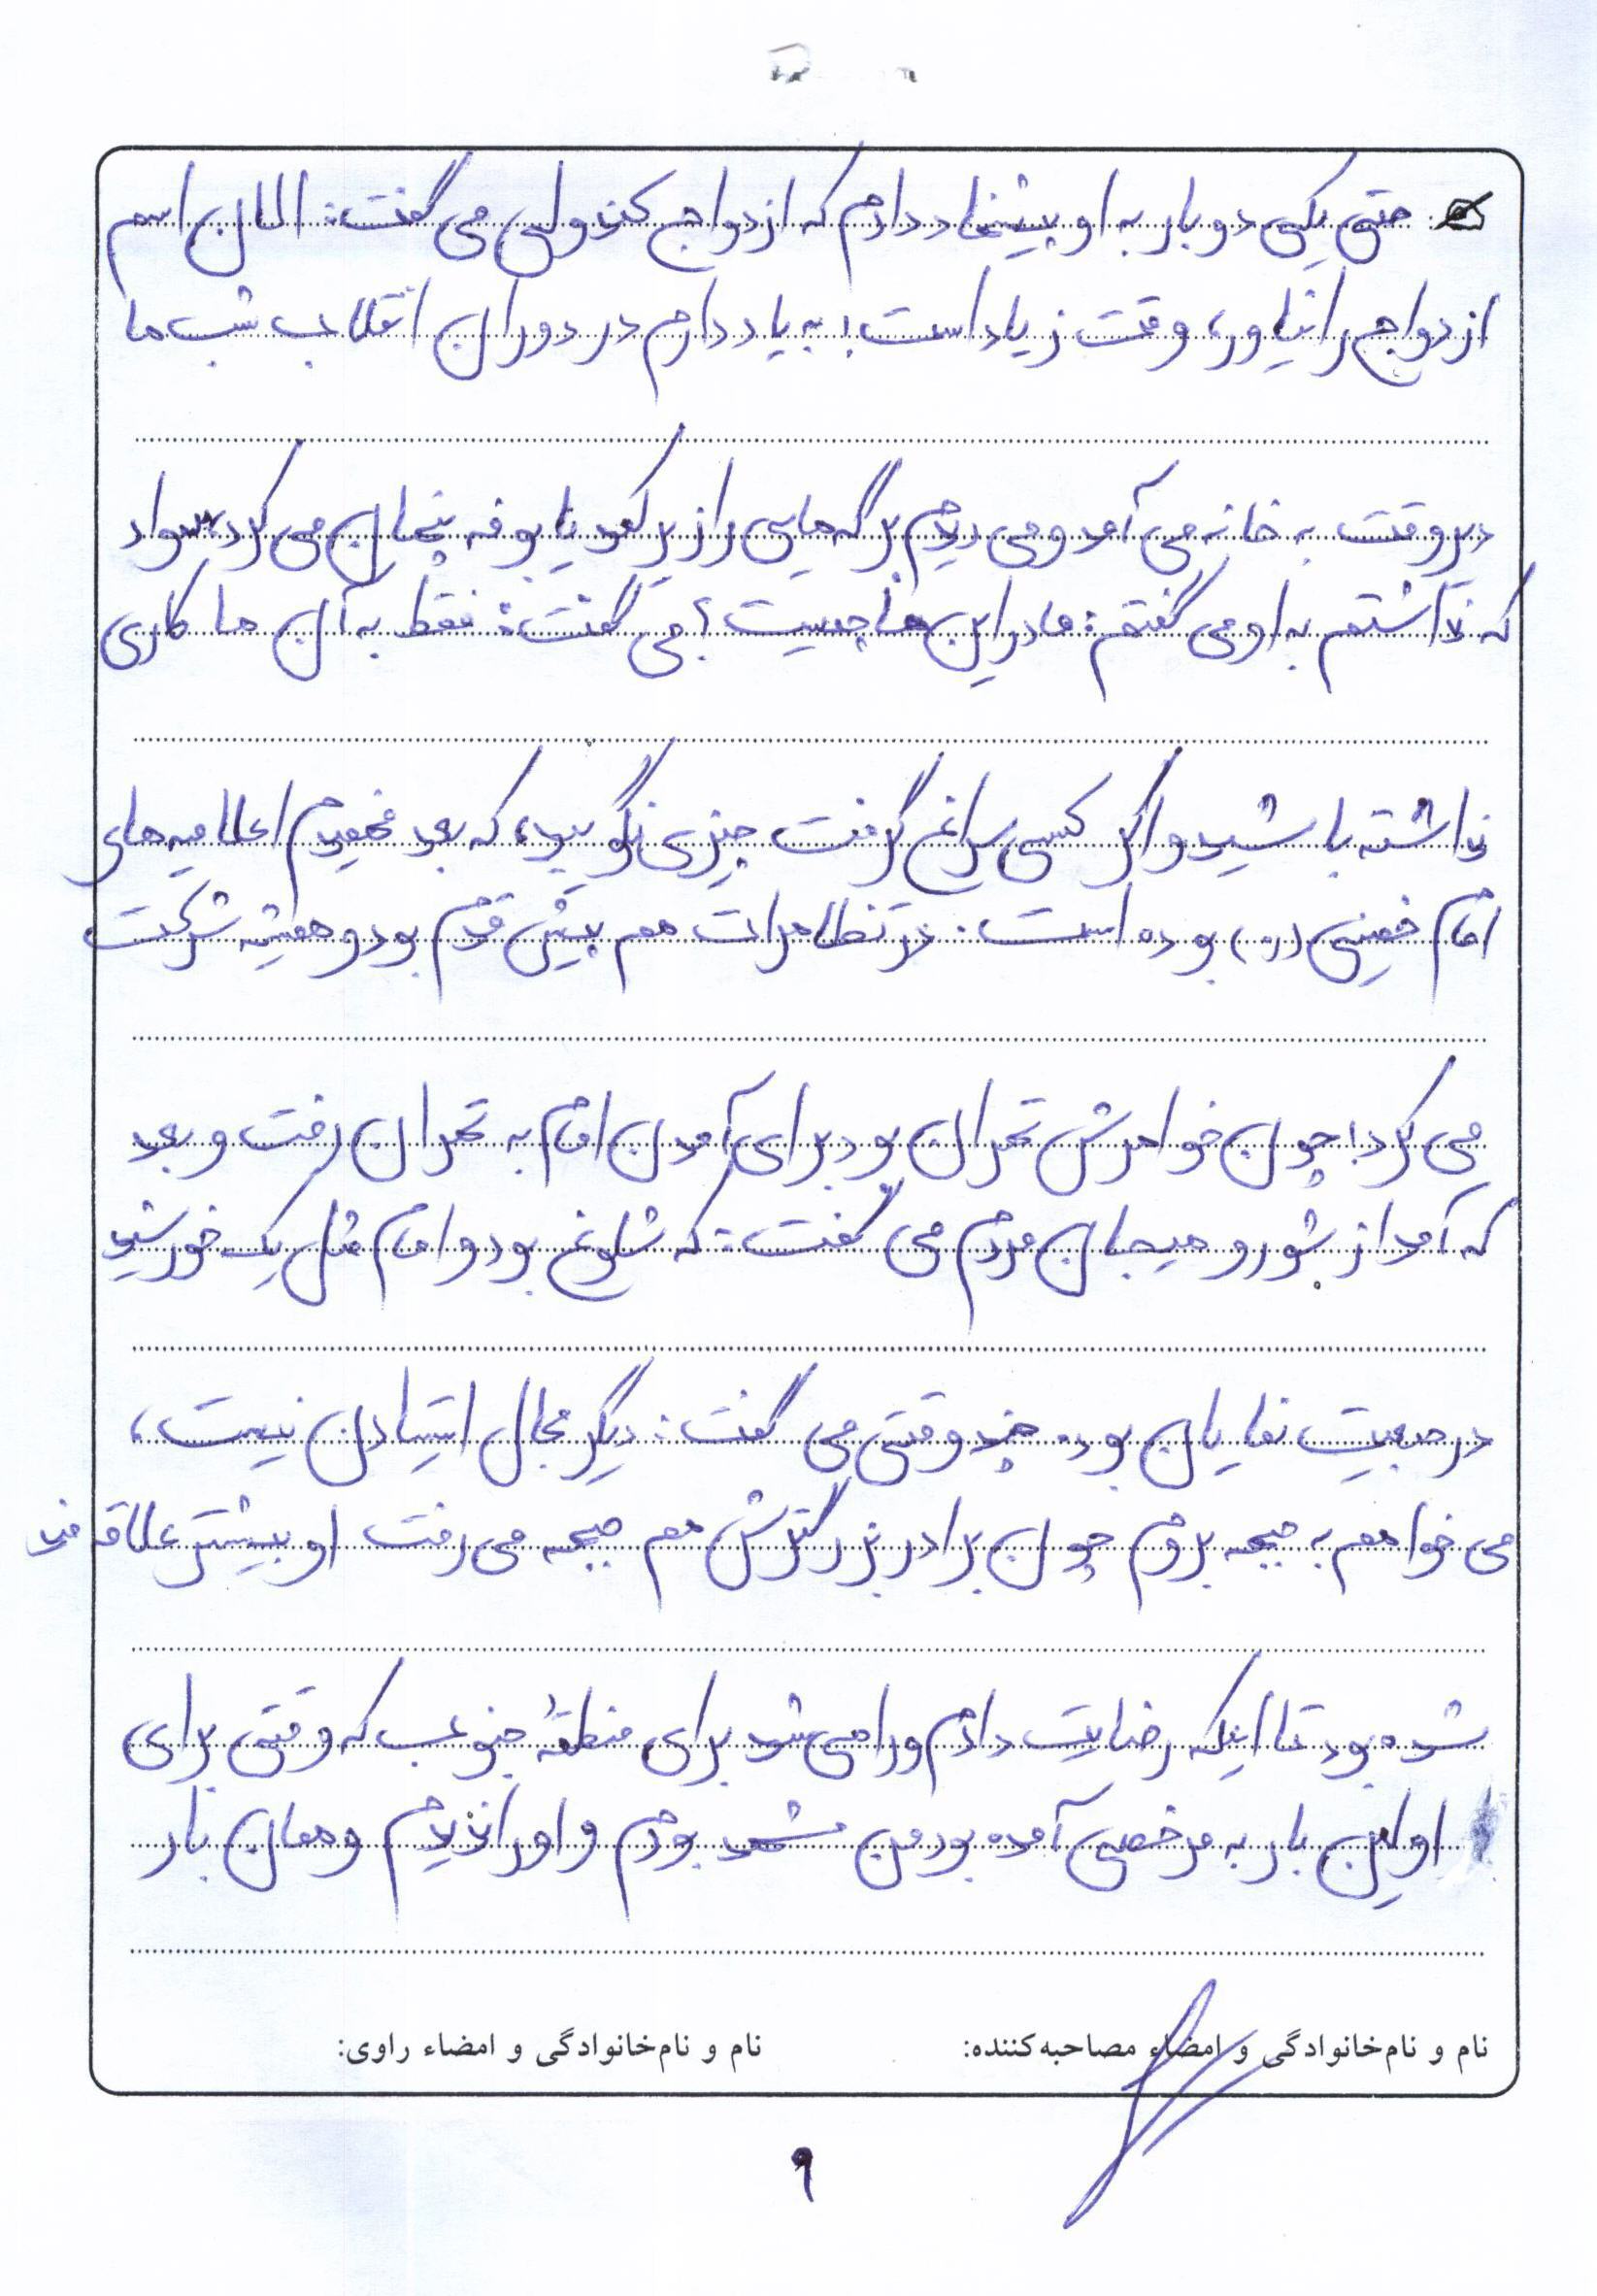 حتی یکی دو بار به او پیشنهاد دادم که ازدواج کند ولی می گفت: الان اسم
ازدواج را نیاور، وقت زیاد است. به یاد دارم در دوران انقلاب شب ها
دیر وقت به خانه می آمد و می دیدم برگه هایی را زیر کمد یا بوفه پنهان می کرد. سواد
که نداشتم به او می گفتم: مادر این ها چیست؟ می گفت: فقط به آن ها کاری
نداشته باشید و اگر کسی سراغ گرفت چیزی نگویید، که بعد فهمیدم اعلامیه های
امام خمینی (ره) بوده است. در تظاهرات هم پیش قدم بود و همیشه شرکت
می کرد. چون خواهرش تهران بود برای آمدن امام به تهران رفت و بعد
که آمد از شور و هیجان مردم می گفت: که شلوغ بود و امام مثل یک خورشید
در جمعیت نمایان بود. چند وقتی می گفت: دیگر مجال ایستادن نیست،
می خواهم به جبهه بروم چون برادر بزرگترش هم جبهه می رفت او بیشتر علاقه مند
شده بود تا اینکه رضایت دادم و راهی شد برای منطقهٔ جنوب که وقتی برای
اولین بار به مرخصی آمده بود من مشهد بودم و او را ندیدم و همان بار
نام و نام‌خانوادگی و امضاء مصاحبه‌کننده:
نام و نام‌خانوادگی و امضاء راوی:
۹